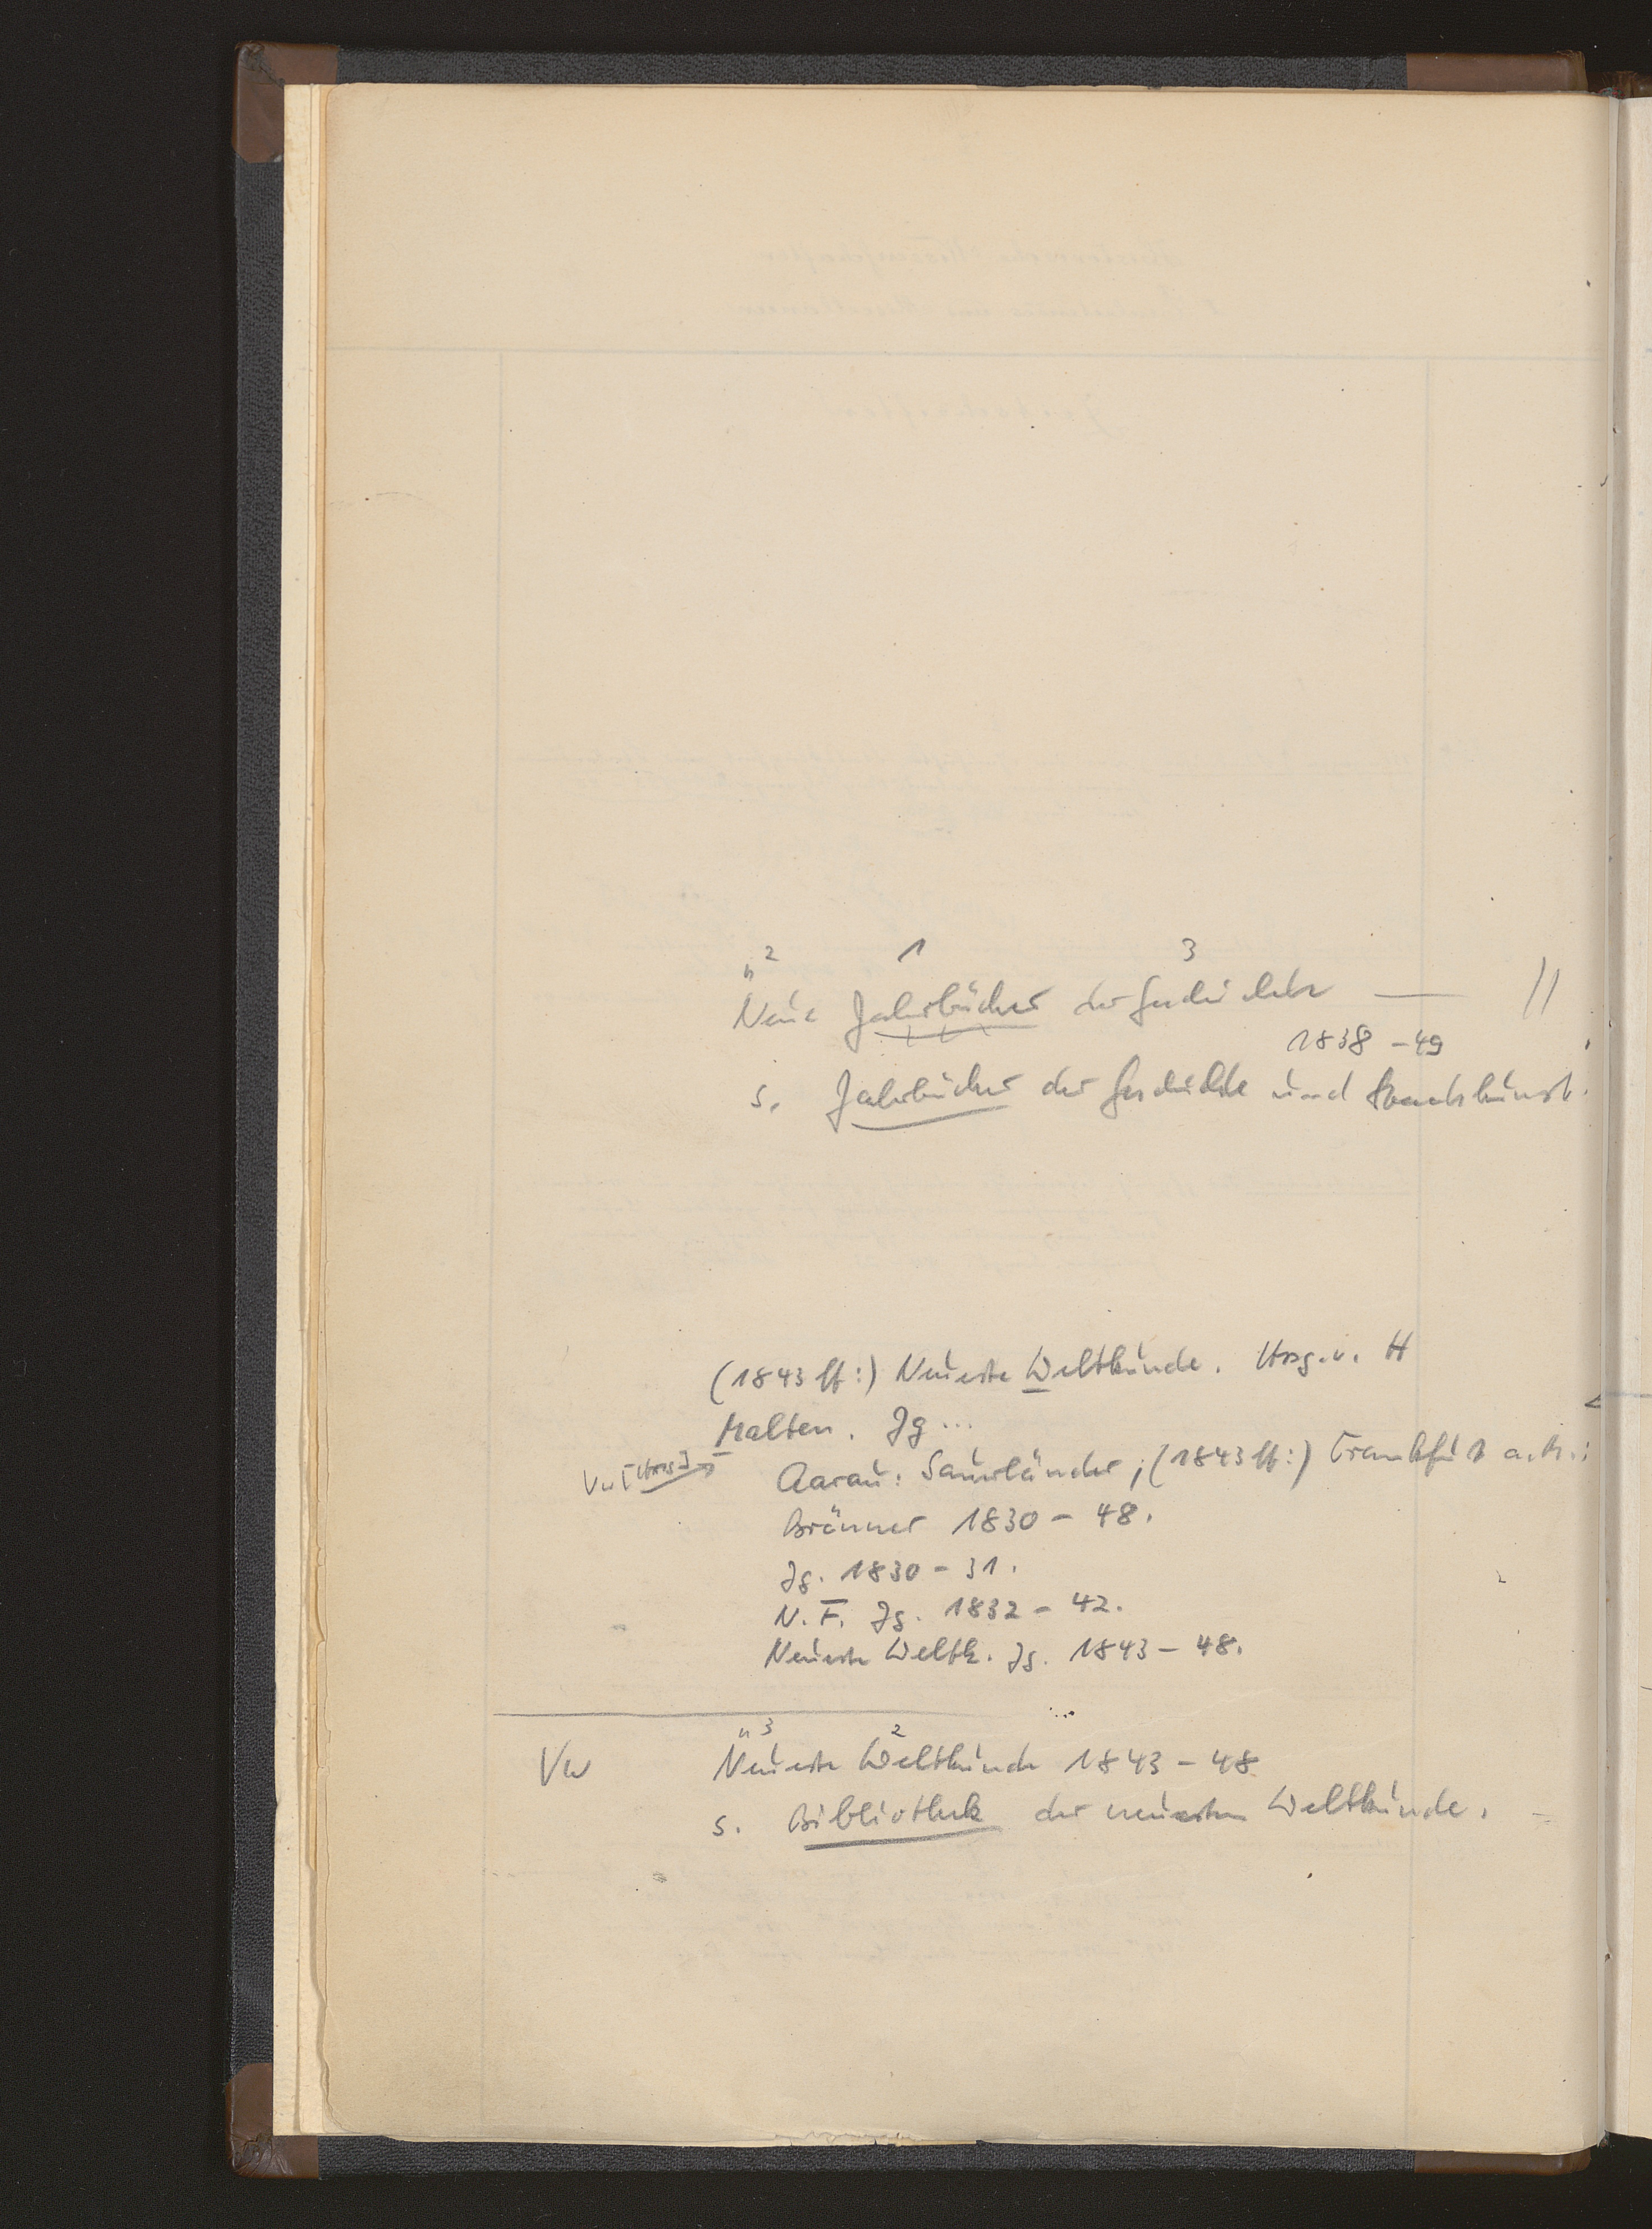 2 1 3
Neue Jahrbücher der Geschichte — //
1838 - 49
s. Jahrbücher der Geschichte und Staatskunst.
(1843 ff:) Neueste Weltkunde. Hrsg. v. H
Malten. Jg ...
Vw [Hrsg.] Aarau: Sauerländer; (1843 ff:) Frankfurt a. M.:
Brönner 1830 - 48.
Jg. 1830 - 31.
N. F. Jg. 1832 - 42.
Neueste Weltk. Jg. 1843 - 48.
3 2
Vw Neueste Weltkunde 1843 - 48
s. Bibliothek der neuesten Weltkunde.